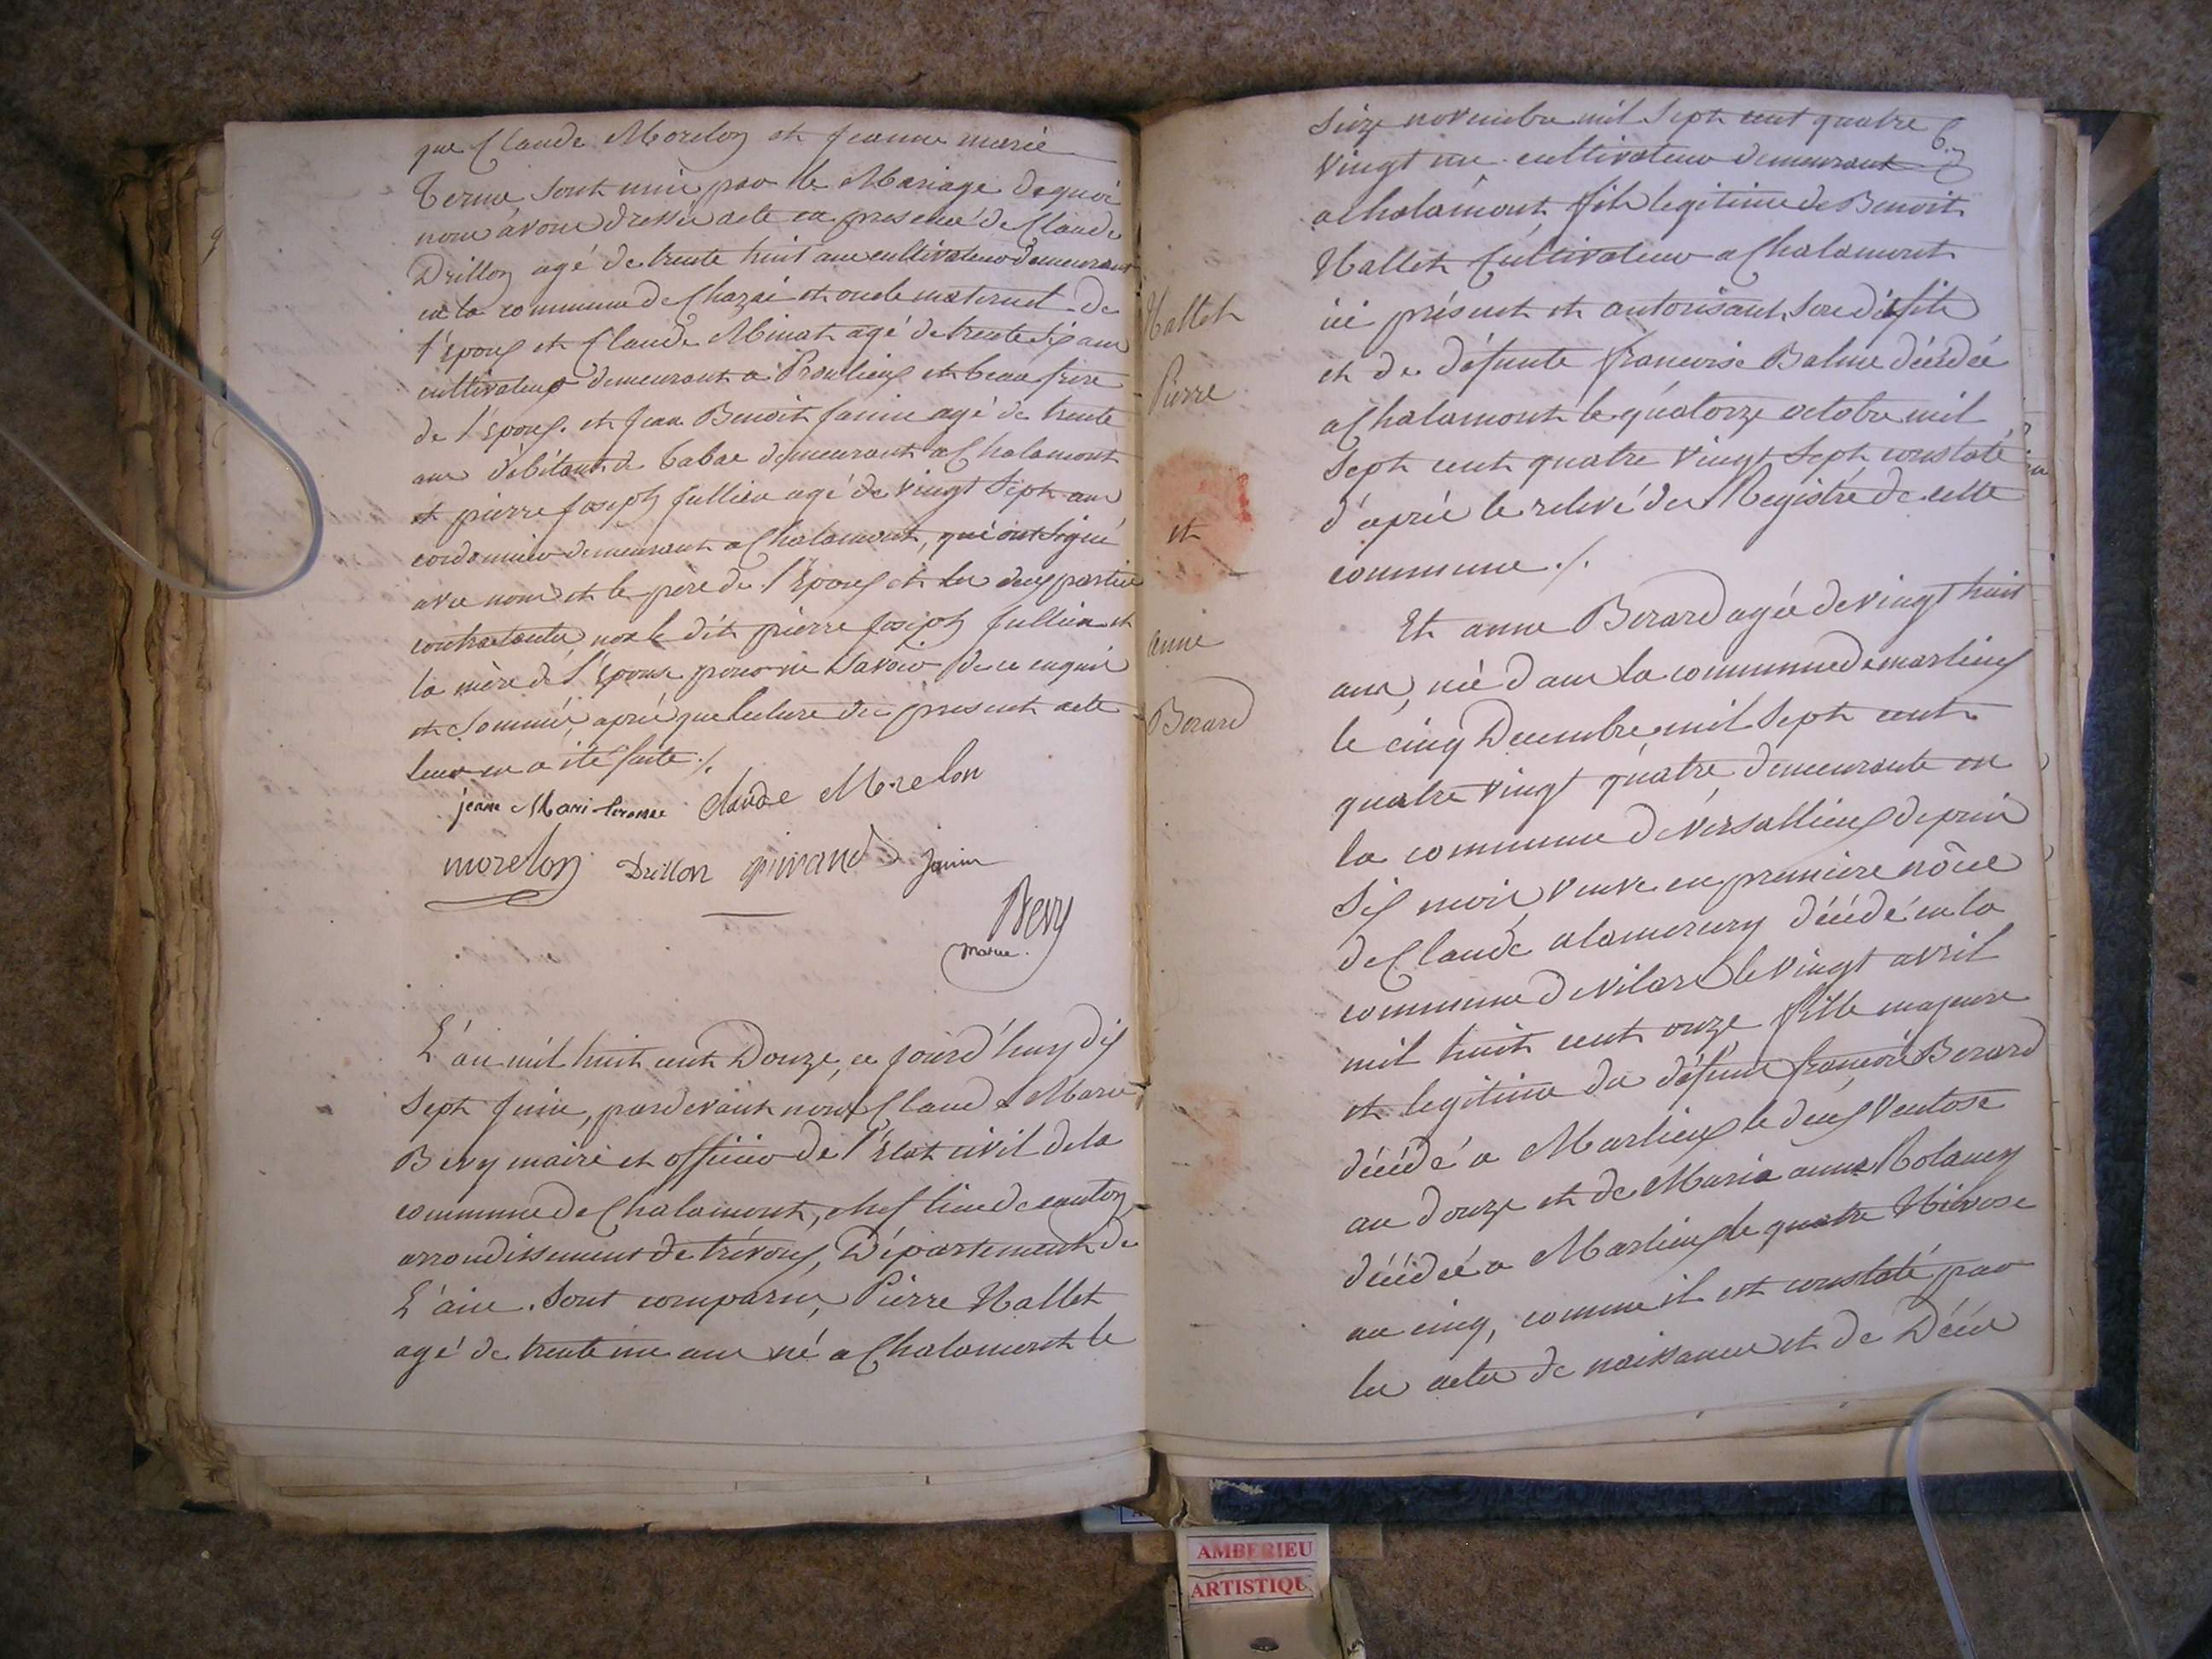 que Claude Morelon et jeanne marie
terme sont unis par le Mariage de quoi
nous avons dressé acte en presence de Claude
Drillon agé de trente huit ans cultivateur demeurant
en la commune de Chazai et oncle maternel de
l'Epoux et Claude Minat agé de trente six ans
cultivateur demeurant a Proulieux et beau frere
de l'Epoux. et jean Benoit janin agé de trente
ans débitant de tabac demeurant a Chalamont
et pierre joseph jullien agé de vingt Sept ans
cordonnier demeurant a Chalamont, qui ont signé
avec nous et le père de l'Epoux et les deux parties
contractantes, non le dit pierre joseph jullien et
la mère de l'Epouse pour ne Savoir de ce enquis
et Sommés, après que lecture du present acte
leur en a été faite ./.
jeane Mari terme Claude Morelon
morelon Drillon janin
Bevy
maire.
L'an mil huit cent Douze, ce jourd'huy dix
Sept juin, pardevant nous Claude Marie
Bevy maire et officier de l'Etat civil de la
commune de Chalamont, chef lieu de canton,
arrondissement de trévoux, Département de
L'ain. Sont comparus, Pierre Nallet
agé de trente un ans né a Chalamont le
Nallet
Pierre
et
anne
Berard
Seize novembre mil Sept cent quatre
vingt un. cultivateur demeurant
a Chalamont, fils legitime de Benoit
Nallet Cultivateur a Chalamont
ici présent et autorisant son dit fils
et de défunte francoise Balme décédée
a Chalamont le quatorze octobre mil
Sept cent quatre vingt Sept constaté
d'après le relevé des Registre de cette
commune ./.
Et anne Berard agée de vingt huit
ans, née dans la commune de marlieux
le cinq Decembre mil Sept cent
quatre vingt quatre, demeurante en
la commune de versallieux depuis
Six mois, veuve en première nôce
de Claude alamercery décédé en la
commune de vilard le vingt avril
mil huit cent onze, fille majeure
et legitime de défunt françois Berard
décédé a Marlieux le deux Ventose
an douze et de Marie anne Rolancy
décédée a Marlieux le quatre Nivose
an cinq, comme il est constaté par
les actes de naissance et de Décès
AMBERIEU
ARTISTIQU